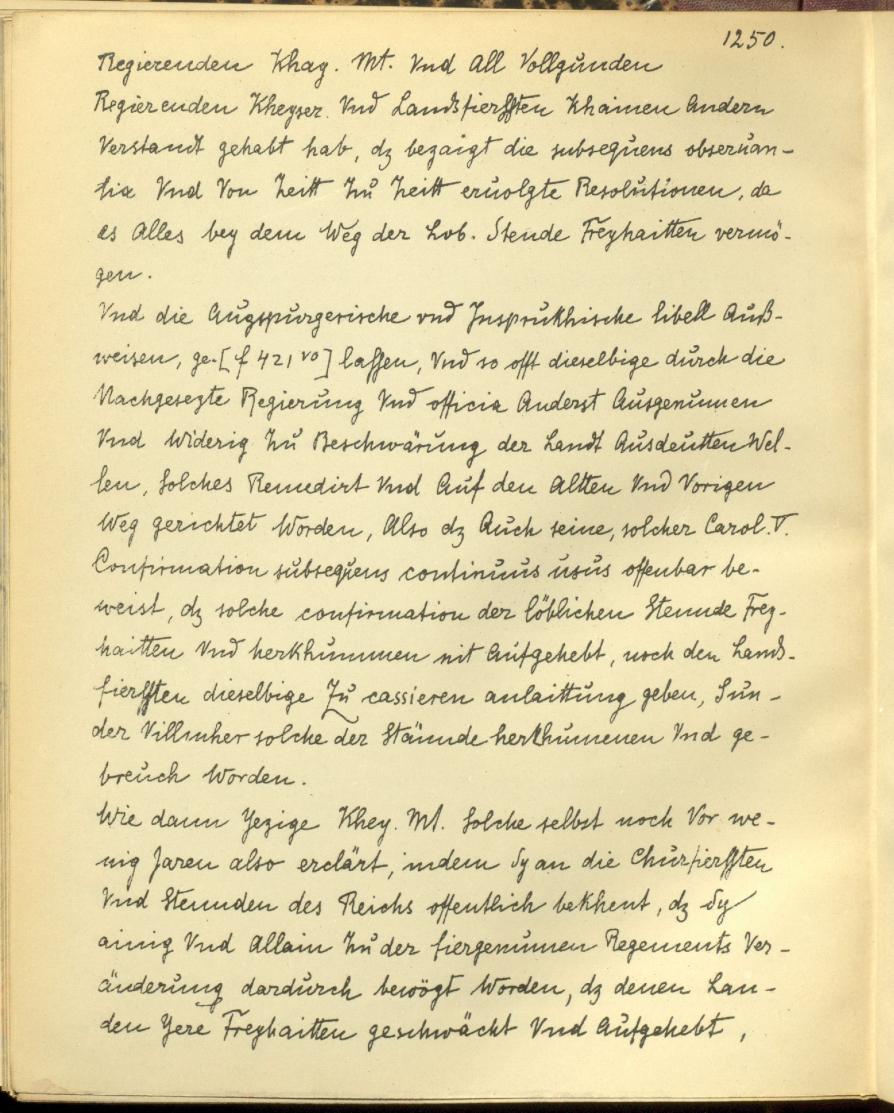 1250.
Regierenden Khay. Mt. Vnd All Vollgunden
Regierenden Kheyser. Vnd Landsfierfften Khainen Andern
Verstandt gehabt hab, dz bezaigt die subsequens obseruan-
tia Vnd Von Zeitt Zu Zeitt eruolgte Resolutionen, da
es Alles bey dem Weg der Lob. Stende Freyhaitten vermö-
gen.
Vnd die Augspurgerische vnd Jnsprukhische libell Auß-
weisen, ge-[f 421 vo] lassen, Vnd so offt dieselbige durch die
Nachgesezte Regierung Vnd officia Anderst Ausgenumen
Vnd Widerig Zu Beschwärung der Landt Ausdeutten Wel-
len, Solches Remedirt Vnd Auf den Altten Vnd Vorigen
Weg gerichtet Worden, Also dz Auch seine, solcher Carol. V.
Confirmation subsequens continuus usus offenbar be-
weist, dz solche confirmation der löblichen Stennde Frey-
haitten Vnd herkhummen nit Aufgehebt, noch den Lands-
fierfften dieselbige Zu cassieren anlaittung geben, Sun-
der Villmher solche der Stännde herkhumenen Vnd ge-
breuch Worden.
Wie dann Yezige Khey. Mt. Solche selbst noch Vor we-
nig Jaren also erclärt, indem Sy an die Churfierfften
Vnd Stennden des Reichs offentlich bekhent, dz Sy
ainig Vnd Allain Zu der fiergenumen Regements Ver-
änderung dardurch bewögt Worden, dz denen Lan-
den Yere Freyhaitten geschwächt Vnd Aufgehebt,